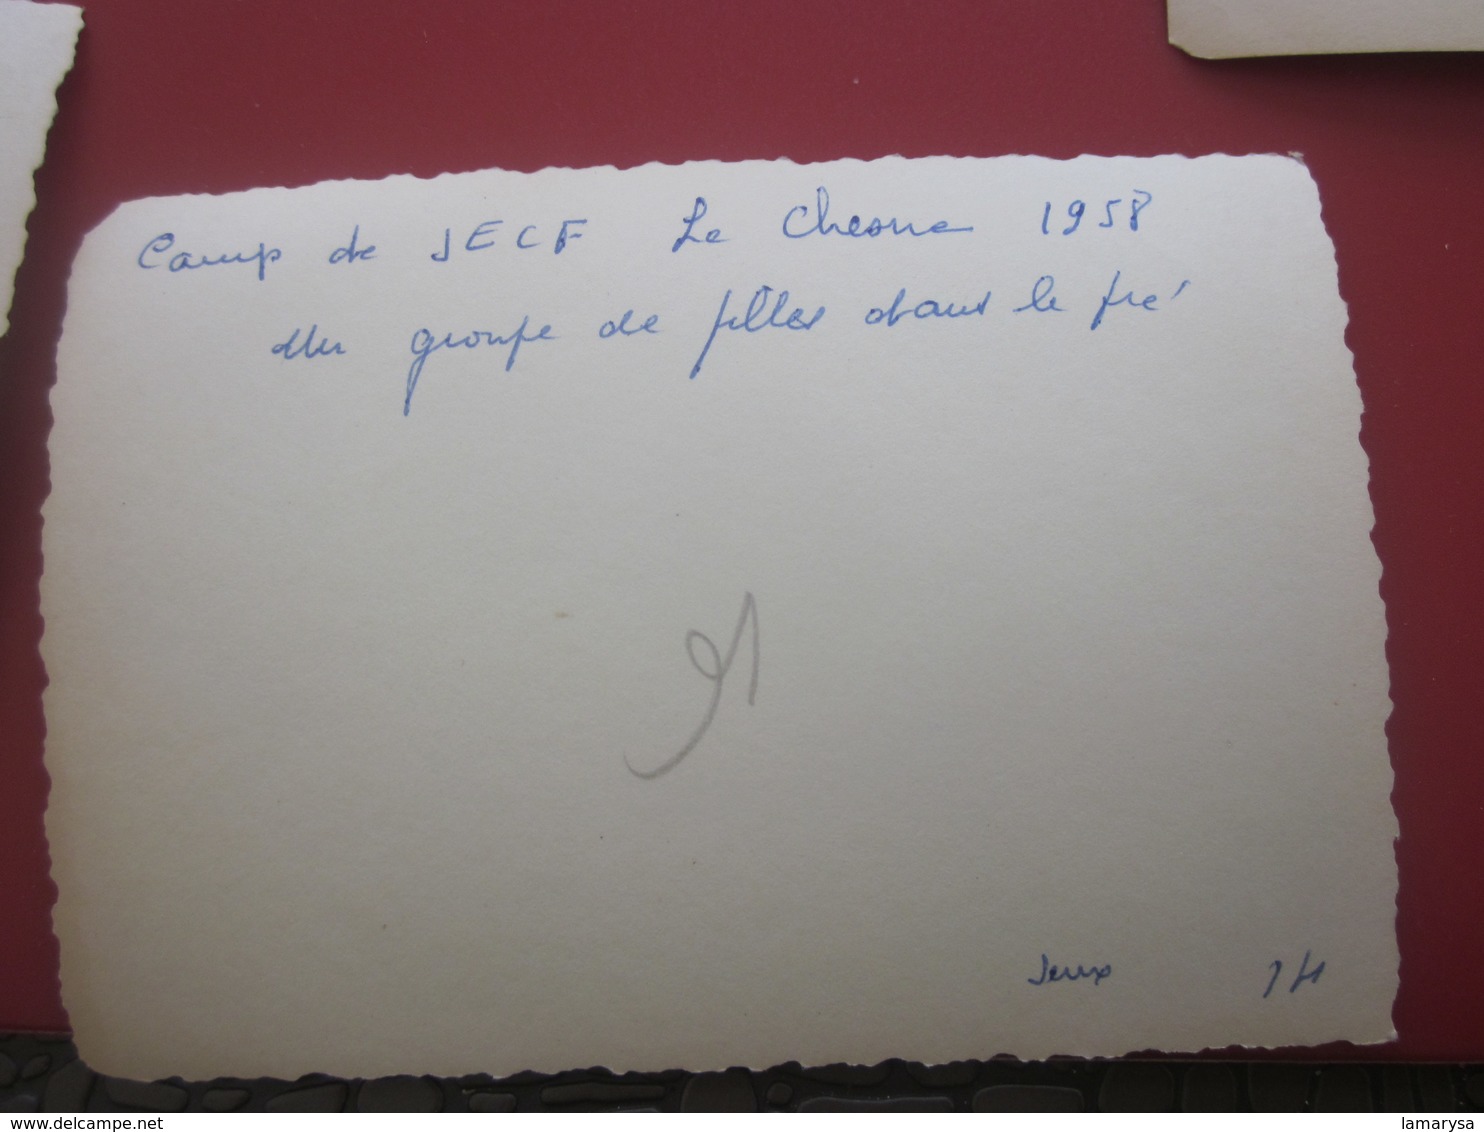 Camp de JECF Le Chesne 1958
un groupe de filles dans le pré
91
Jeux 14
delcampe.net
lamarysa